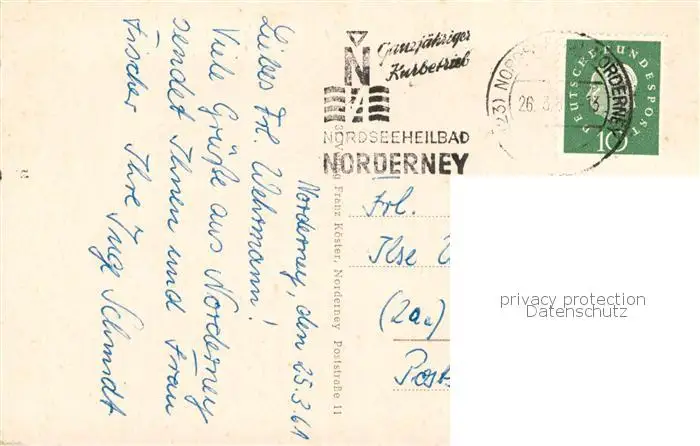 Norderney, den 25.3.61
Liebes Frl. Wehrmann!
Viele Grüße aus Norderney
sendet Ihnen und Frau
Fischer Ihre Inge Schmidt
Ganzjähriger
Kurbetrieb
N
NORDSEEHEILBAD
NORDERNEY
NORDERNEY
26. 3.
DEUTSCHE BUNDESPOST
10
Franz Köster, Norderney Poststraße 11
Frl.
Ilse
Post
privacy protection
Datenschutz